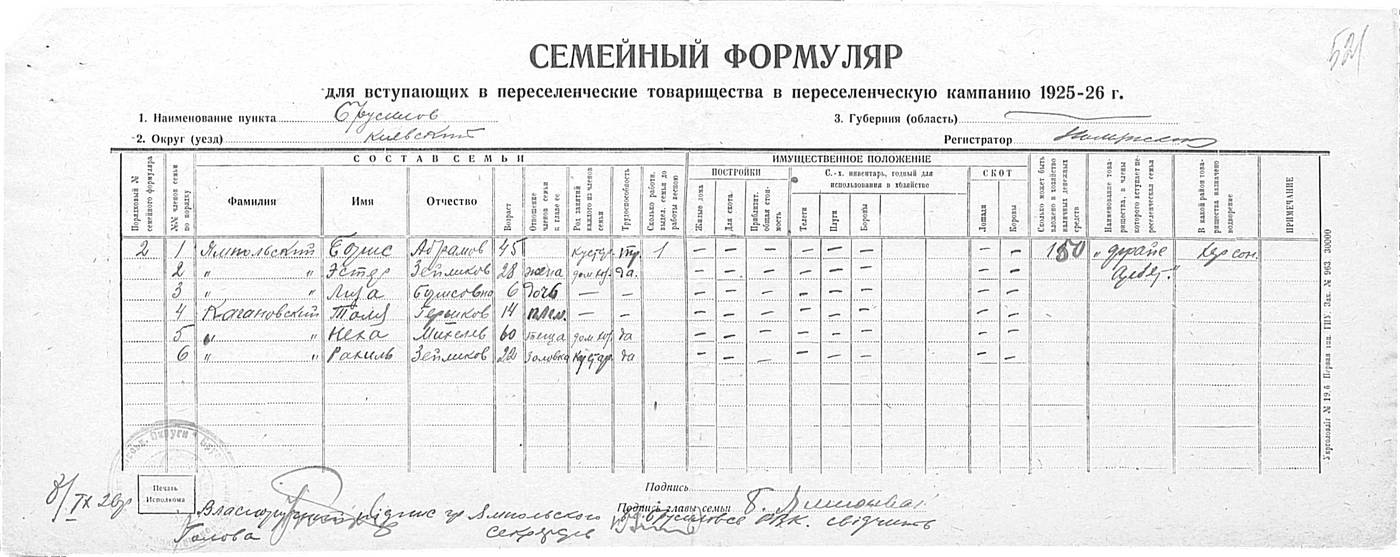 521
СЕМЕЙНЫЙ ФОРМУЛЯР
для вступающих в переселенческие товарищества в переселенческую кампанию 1925-26 г.
1. Наименование пункта Брусилов
3. Губерния (область)
2. Округ (уезд) Киевский
Регистратор
Порядковый № семейного формуляра
СОСТАВ СЕМЬИ
№№ членов семьи по порядку
Фамилия
Имя
Отчество
Возраст
Отношение членов семьи к главе ее
Род занятий каждого из членов семьи
Трудоспособность
Сколько работн. выдел. семья до работы весною
ИМУЩЕСТВЕННОЕ ПОЛОЖЕНИЕ
ПОСТРОЙКИ
Жилые дома
Для скота
Приблизит. общая стоимость
С.-х. инвентарь, годный для использования в хозяйстве
Телеги
Плуги
Бороны
СКОТ
Лошади
Коровы
Сколько может быть вложено в хозяйство наличных денежных средств
Наименование товарищества, в члены которого вступает переселенческая семья
В какой район товарищества назначено водворение
ПРИМЕЧАНИЕ
2 1 Ямпольский Борис Абрамов 45 кустар. тр. 1 — — — — — — — — 150 „фрайе Херсон.
2 „ „ Эстер Зейликов 28 жена дом.хоз. да. — — — — — — — —
3 „ „ Лиза Борисовна 6 дочь — — — — — — — — — —
4 Кагановский Толя Гершков 14 плем. — — — — — — — — — —
5 „ „ Неха 60 теща дом.хоз. да — — — — — — — —
6 „ „ Рахиль Зейликов 22 золовка Кустар. да — — — — — — — —
Укрголовліт № 19.6 Первая тип. ГИУ. Зак. № 963 30000
Печать Исполкома
Подпись
Подпись главы семьи
8/IX 26р
підпис гр Ямпольского Брусиловск РВК. свідчить
Голова
Секретарь